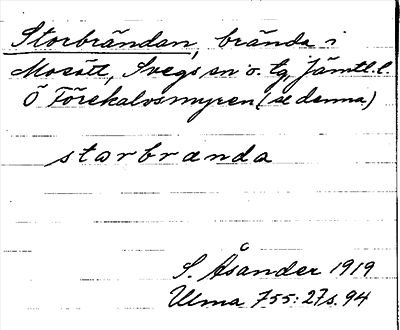 Storbrändan, brända i
Mosätt, Svegs sn o. tg, Jämtl. l.
Ö Förekalvsmyren (se denna)
storbranda
S. Åsander 1919
Ulma 755: 27 s. 94